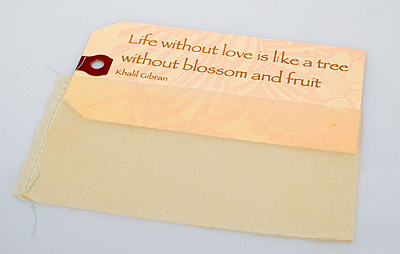 Life without love is like a tree
without blossom and fruit
Khalil Gibran